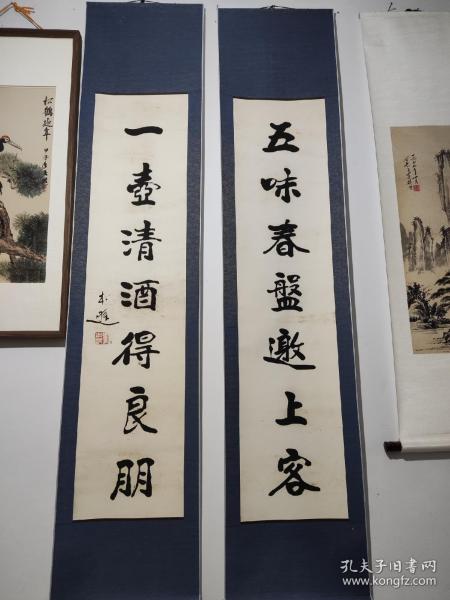 五味春盤邀上客
一壺清酒得良朋
松鶴延年
孔夫子旧书网
www.kongfz.com